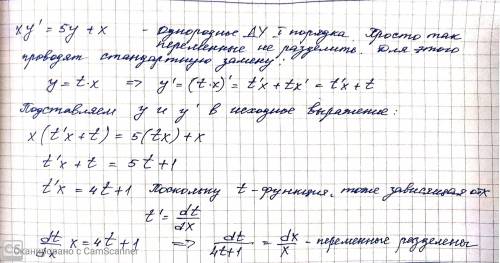 xy' = 5y + x - однородные ДУ I порядка. Просто так
переменные не разделить. Для этого
проводят стандартную замену:
y = t·x => y' = (t·x)' = t'x + tx' = t'x + t
Подставляем y и y' в исходное выражение:
x(t'x + t) = 5(tx) + x
t'x + t = 5t + 1
t'x = 4t + 1 Поскольку t - функция, тоже зависящая от x
t' = dt/dx
dt/dx x = 4t + 1 => dt/4t+1 = dx/x - переменные разделены
CS Сканировано с CamScanner